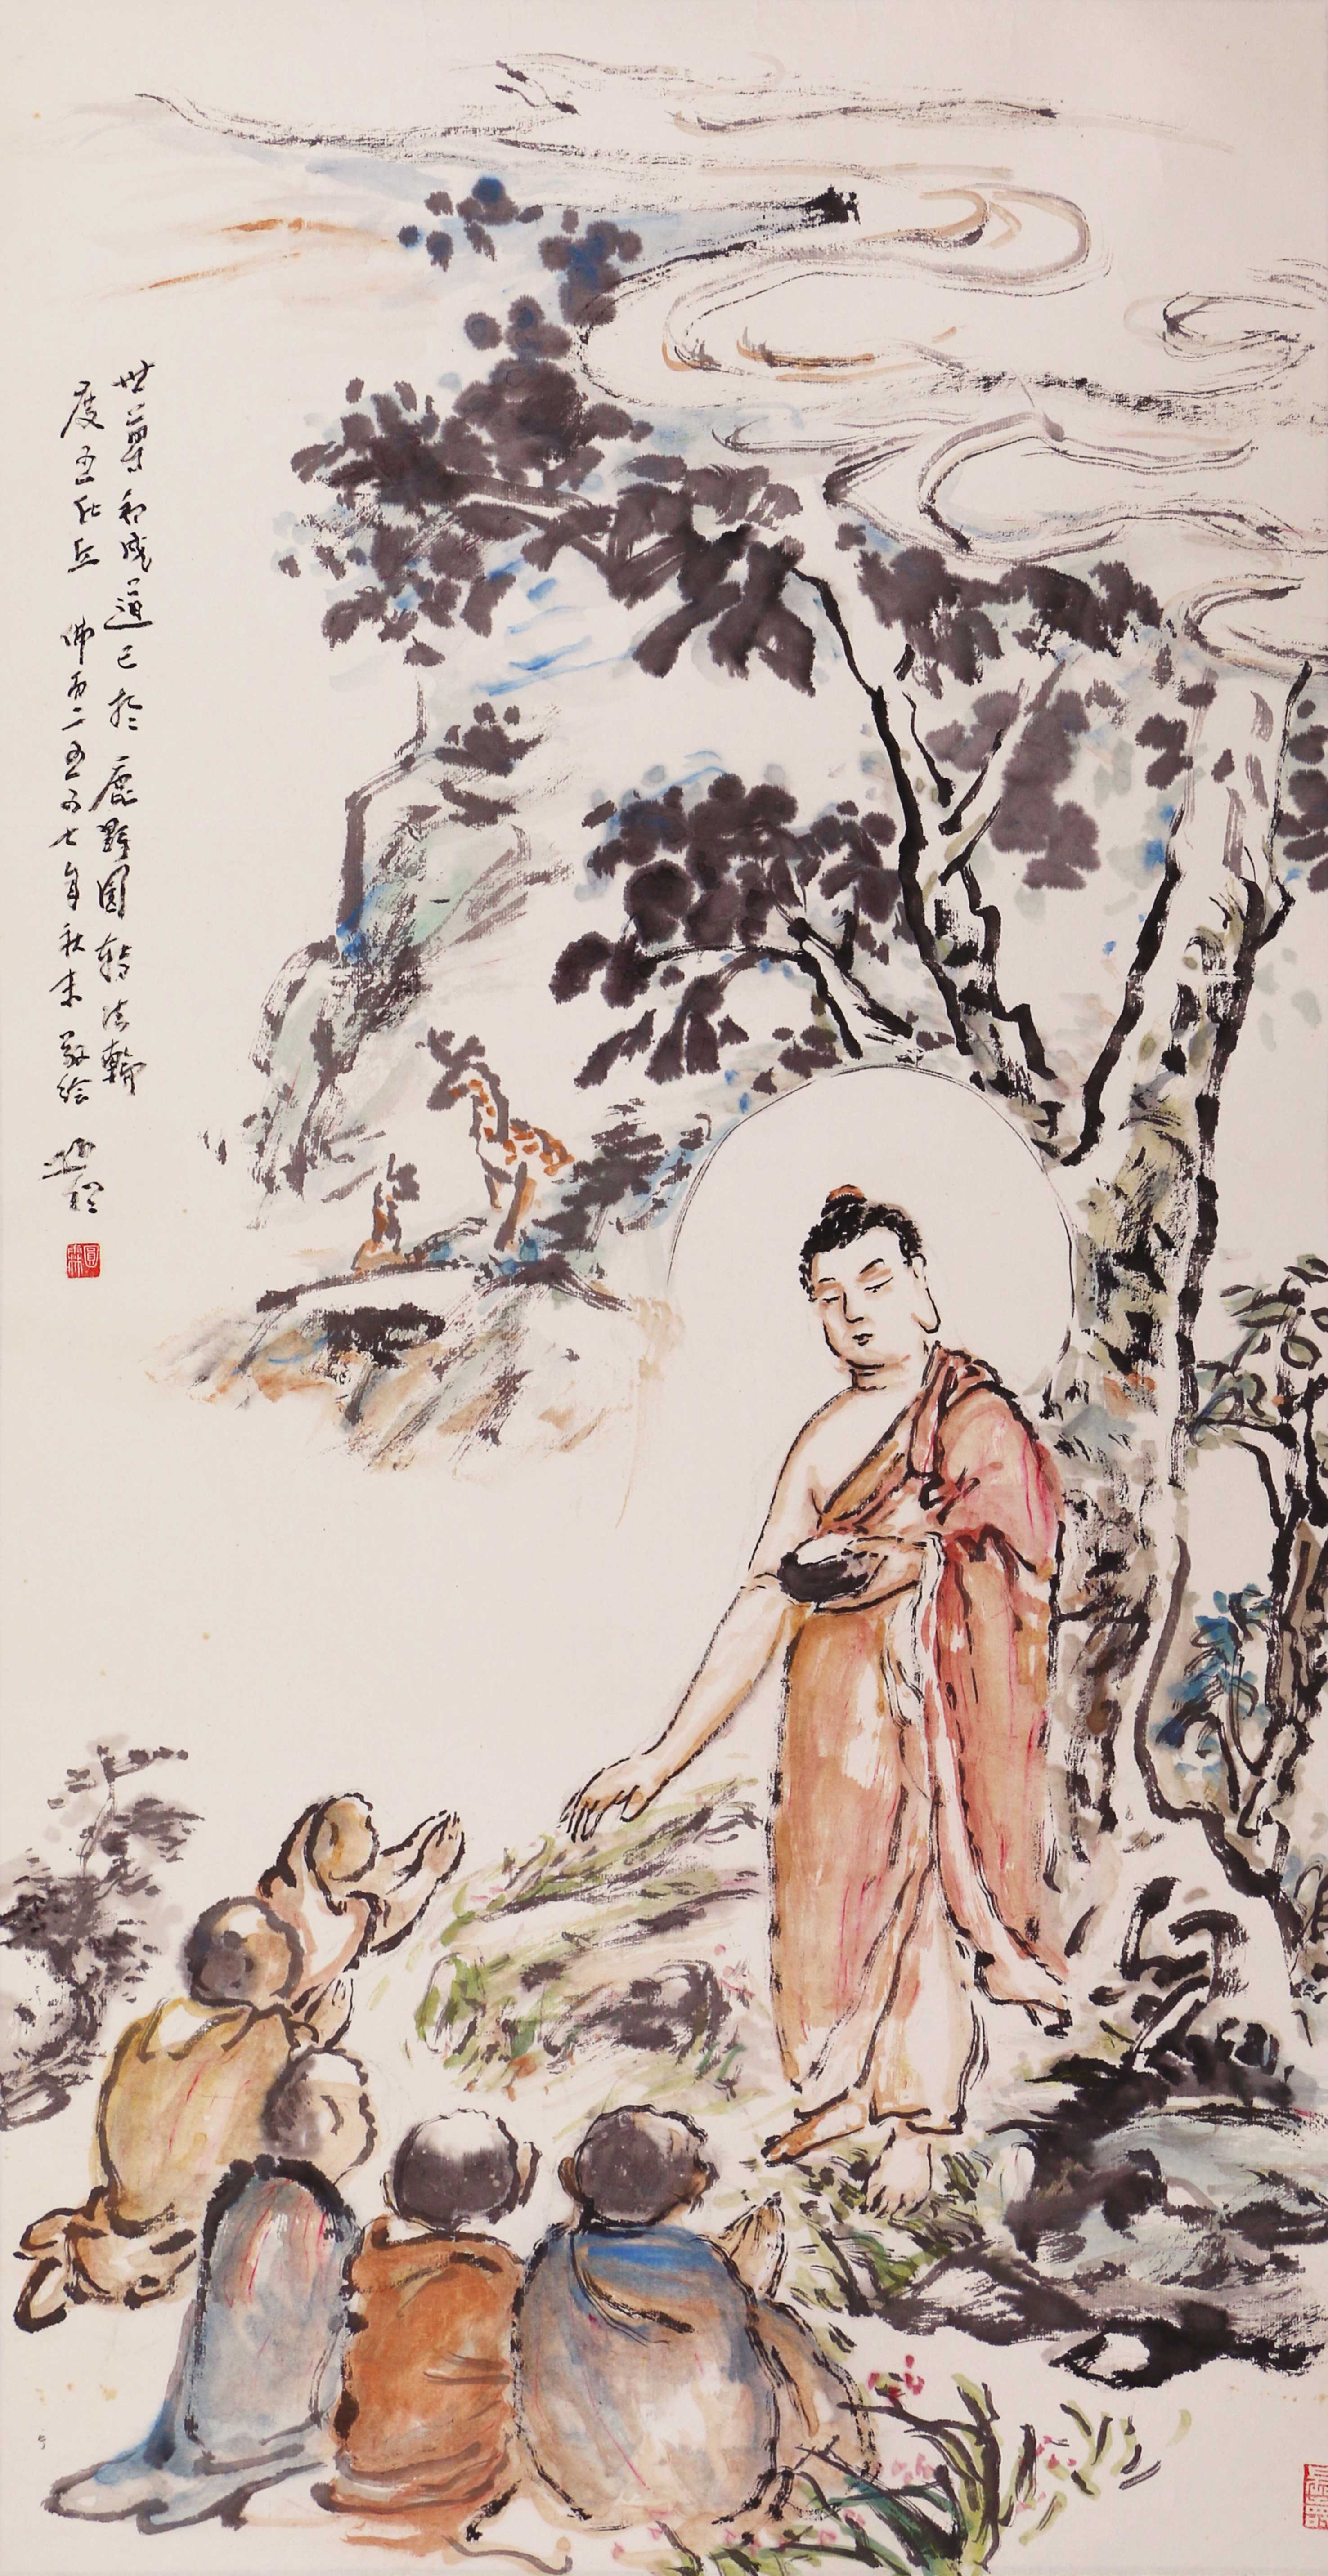 世尊初成道已於鹿野園轉法輪
度五比丘 佛曆二五五七年秋末敬繪
圓霖